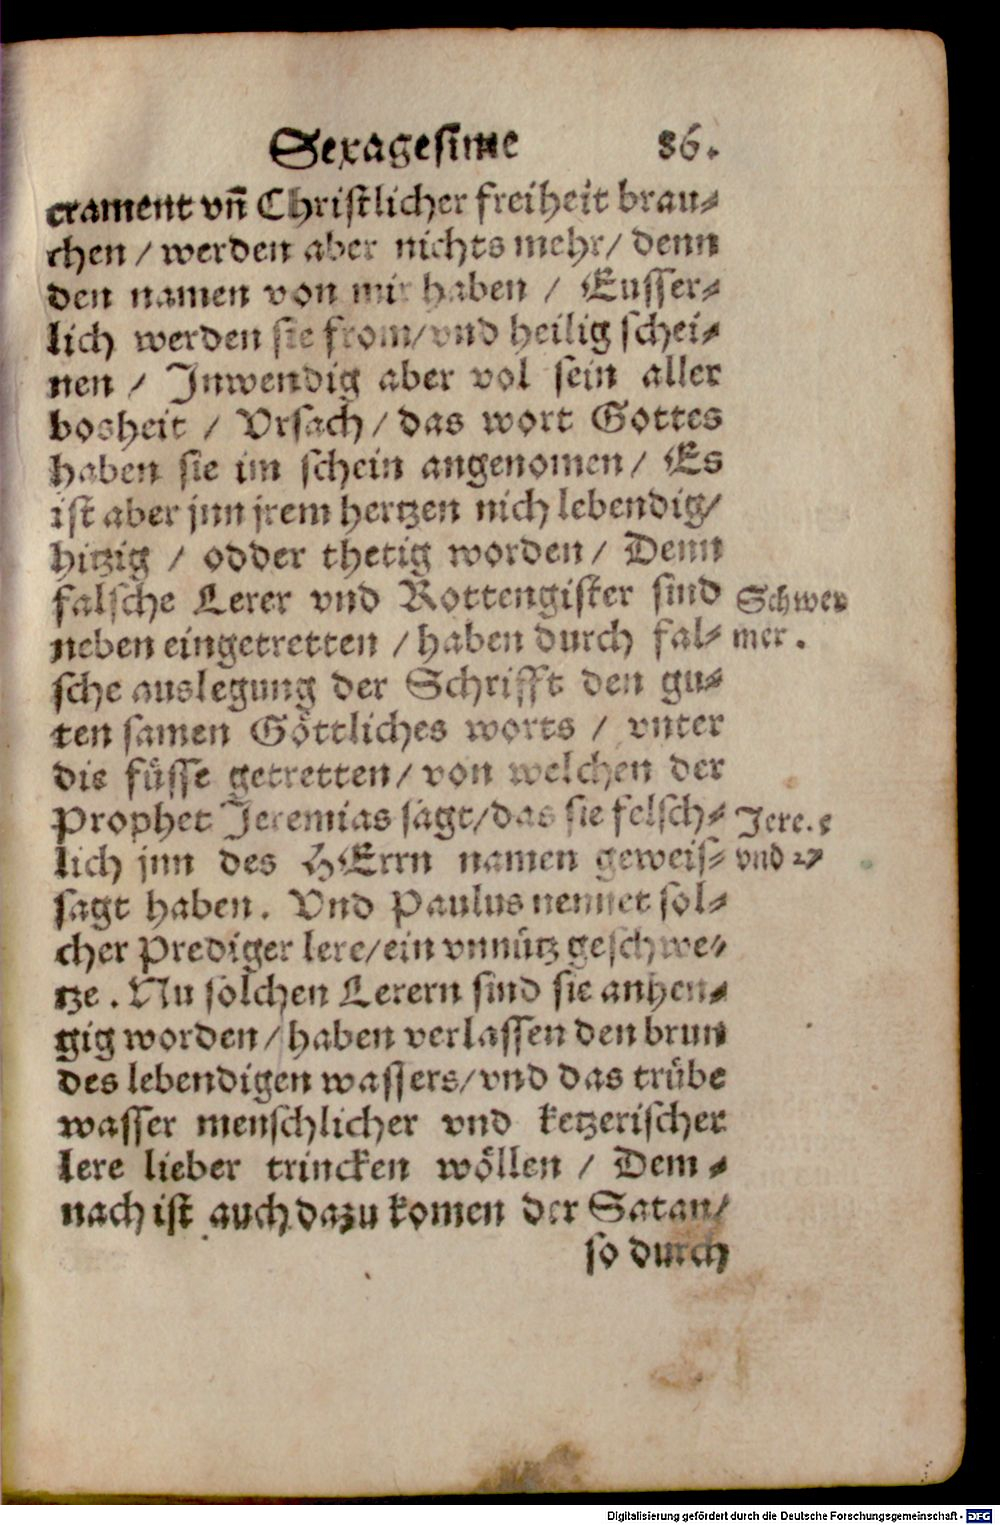 Sexagesime 86.
crament vñ Christlicher freiheit brau⸗
chen / werden aber nichts mehr / denn
den namen von mir haben / Eusser⸗
lich werden sie from / vnd heilig schei⸗
nen / Inwendig aber vol sein aller
bosheit / Vrsach / das wort Gottes
haben sie im schein angenomen / Es
ist aber jnn jrem hertzen nich lebendig /
hitzig / odder thetig worden / Denn
falsche Lerer vnd Rottengister sind
neben eingetretten / haben durch fal⸗
sche auslegung der Schrifft den gu⸗
ten samen Göttliches worts / vnter
die füsse getretten / von welchen der
Prophet Jeremias sagt / das sie felsch⸗
lich jnn des HErrn namen geweis⸗
sagt haben. Vnd Paulus nennet sol⸗
cher Prediger lere / ein vnnütz geschwe⸗
tze. Nu solchen Lerern sind sie anhen⸗
gig worden / haben verlassen den brun
des lebendigen wassers / vnd das trübe
wasser menschlicher vnd ketzerischer
lere lieber trincken wöllen / Dem⸗
nach ist auch dazu komen der Satan /
so durch
Schwer
mer.
Jere.
vnd 27
Digitalisierung gefördert durch die Deutsche Forschungsgemeinschaft - DFG